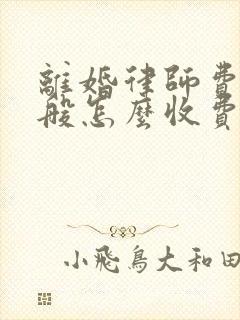 離婚律師費
般怎麼收費
小飛鳥大和田